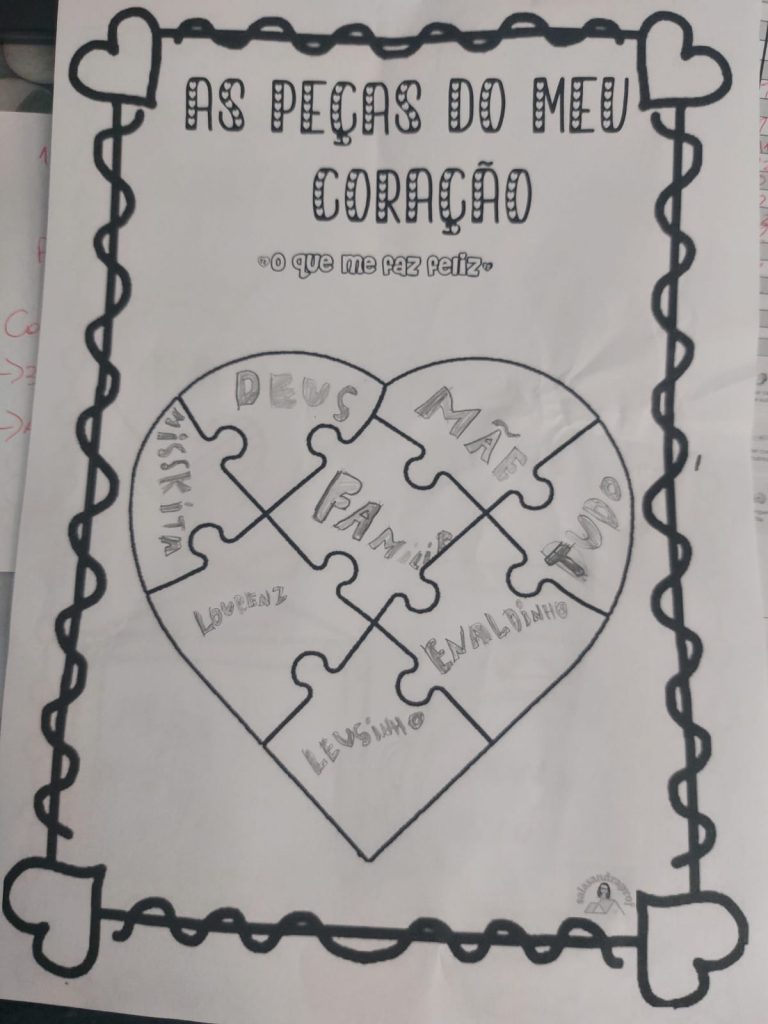 AS PEÇAS DO MEU
CORAÇÃO
O que me faz feliz
DEUS
MÃE
MISSKITA
FAMíliA
TUDO
LOURENZ
ENALDINHO
LEUSiNHO
salasandraprof
Co